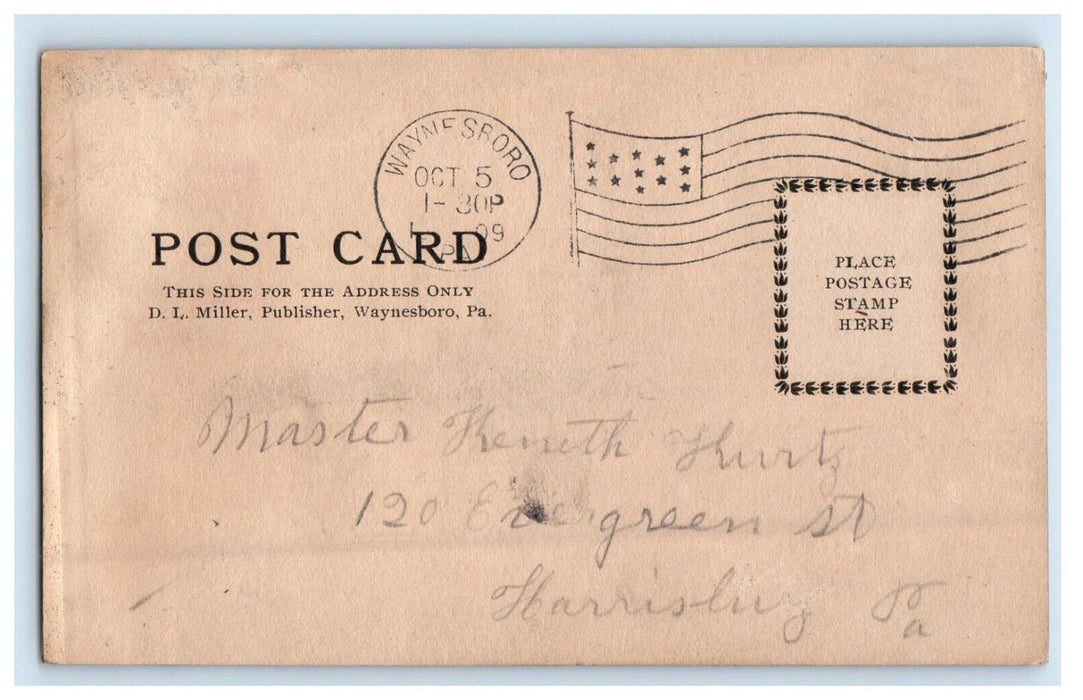 WAYNESBORO
OCT 5
1-30P
09
PA
POST CARD
THIS SIDE FOR THE ADDRESS ONLY
D. L. Miller, Publisher, Waynesboro, Pa.
PLACE
POSTAGE
STAMP
HERE
Master Keneth Kurtz
120 Evergreen st
Harrisburg Pa